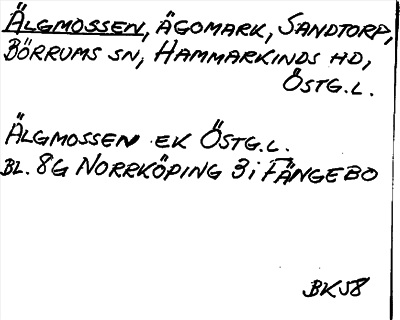 ÄLGMOSSEN, ÄGOMARK, SANDTORP,
BÖRRUMS SN, HAMMARKINDS HD,
ÖSTG.L.
ÄLGMOSSEN EK ÖSTG.L.
BL. 8G NORRKÖPING 3i FÄNGEBO
BK58